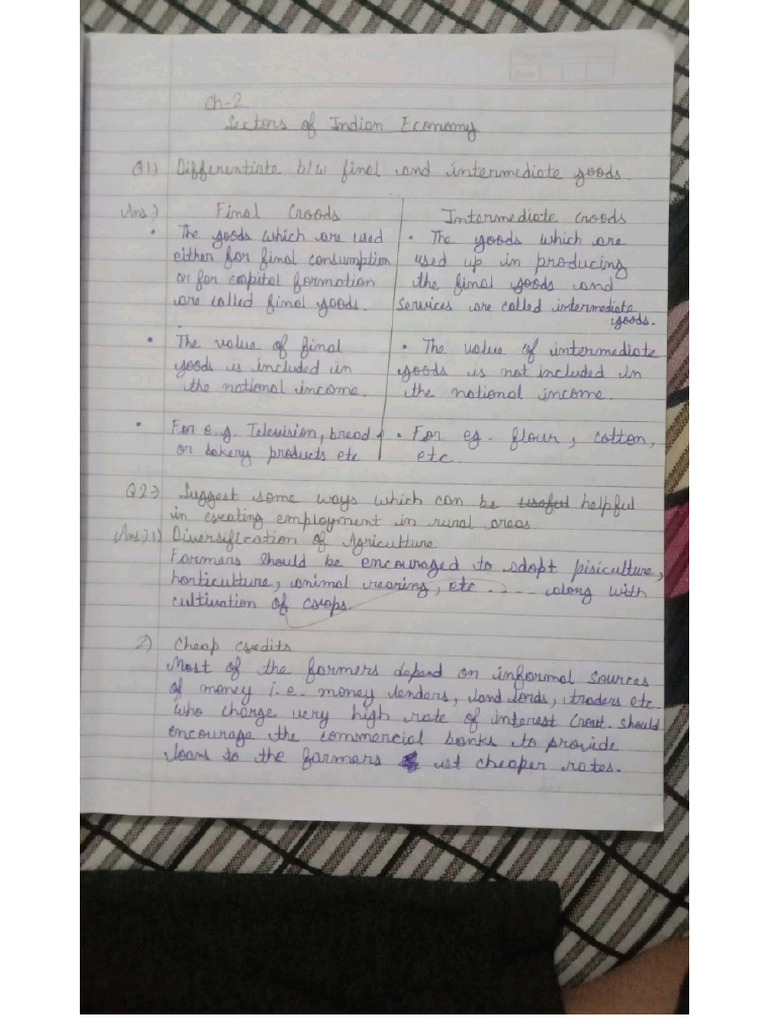 Ch-2
Sectors of Indian Economy
Q1) Differentiate b/w final and intermediate goods.
Ans) Final Goods Intermediate Goods
• The goods which are used
either for final consumption
or for capital formation
are called final goods.
• The value of final
goods is included in
the national income.
• For e.g. Television, bread
or bakery products etc
• The goods which are
used up in producing
the final goods and
services are called intermediate
goods.
• The value of intermediate
goods is not included in
the national income.
• For eg. flour, cotton,
etc.
Q2) Suggest some ways which can be helpful
in creating employment in rural areas.
Ans) 1) Diversification of Agriculture
Farmers should be encouraged to adopt pisiculture,
horticulture, animal rearing, etc ..... along with
cultivation of crops.
2) Cheap credits
Most of the farmers depend on informal sources
of money i.e. money lenders, land lords, traders etc.
who charge very high rate of interest Govt. should
encourage the commercial banks to provide
loans to the farmers at cheaper rates.